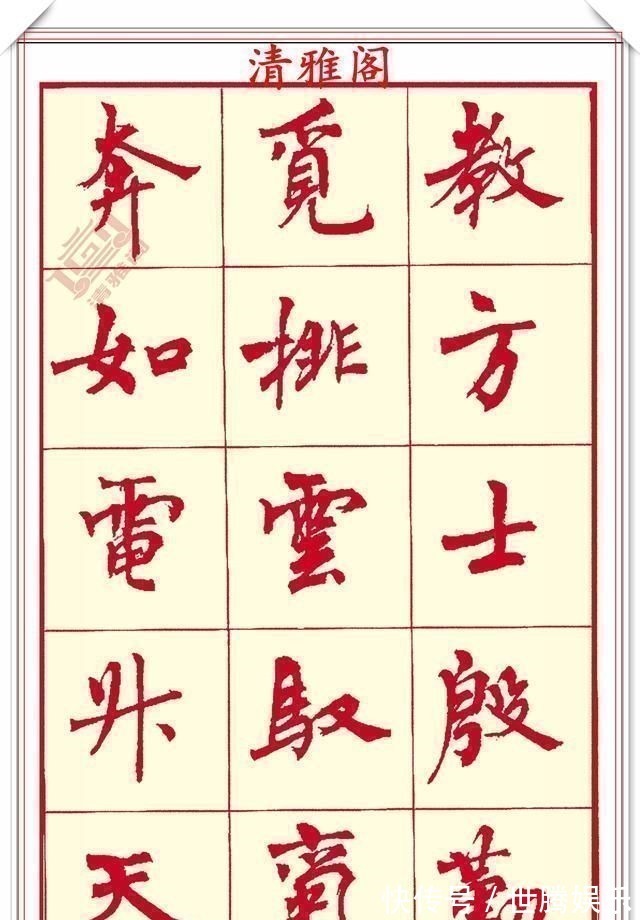 清雅阁
教方士殷
覓排雲馭
奔如電升天
清雅阁
快传号 / 世腾娱乐